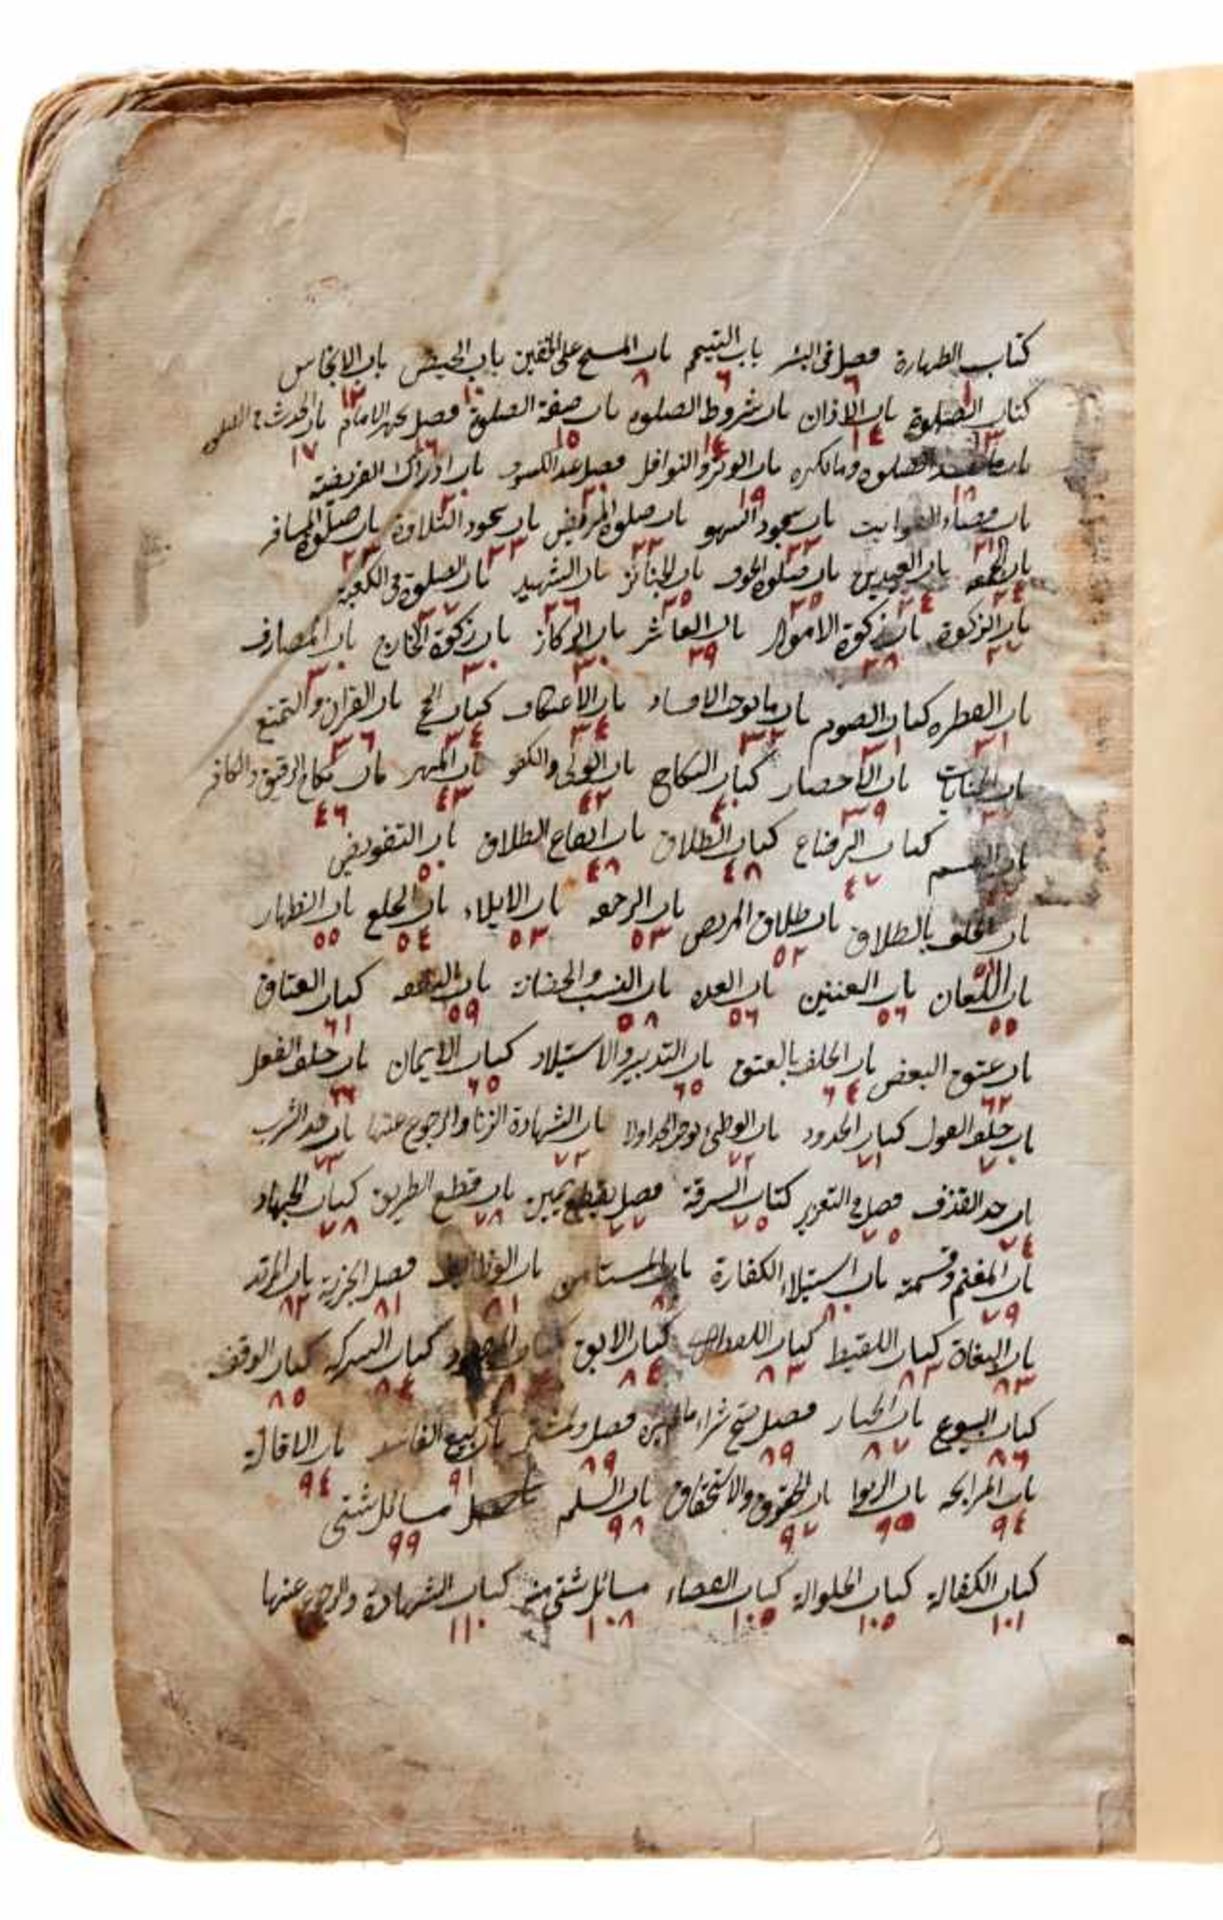 كتاب الطهارة فصل فى البئر باب التيمم باب المسح على الخفين باب الحيض باب الانجاس
١ ٦ ٦ ٨ ١٠ ١٢
كتاب الصلوة باب الاذان باب شروط الصلوة باب صفة الصلوة فصل يجهر الامام باب الحدث فى
١٣ ١٤ ١٤ ١٥ ١٦ ١٧
باب الصلوة وما يكره باب الوتر والنوافل فصل عند الكسوف باب ادراك الفريضة
١٨ ١٩ ٢٠ ٢٠
باب قضاء الفوايت باب سجود السهو باب صلوة المريض باب سجود التلاوة باب صلوة المسافر
٢١ ٢٢ ٢٢ ٢٣ ٢٣
باب الجمعه باب العيدين باب صلوة الخوف باب الجنائز باب الشهيد باب الصلوة فى الكعبة
٢٤ ٢٤ ٢٥ ٢٥ ٢٦ ٢٧
باب الزكوة باب زكوة الاموال باب العاشر باب الركاز باب زكوة الخارج باب المصارف
٢٧ ٢٨ ٢٩ ٣٠ ٣٠ ٣٠
باب الفطره كتاب الصوم باب ما يوجب الافساد باب الاعتكاف كتاب الحج باب القران والتمتع
٣١ ٣١ ٣٢ ٣٤ ٣٤ ٣٦
باب الجنايات باب الاحصار كتاب النكاح باب الولى والكفو باب المهر باب نكاح الرقيق والكافر
٣٩ ٤٠ ٤٢ ٤٣ ٤٦
باب القسم كتاب الرضاع كتاب الطلاق باب ايقاع الطلاق باب التفويض
٤٧ ٤٨ ٤٨ ٥٠
باب الحلف بالطلاق باب طلاق المريض باب الرجعه باب الايلاء باب الخلع باب الظهار
٥١ ٥٢ ٥٣ ٥٣ ٥٤ ٥٥
باب اللعان باب العنين باب العده باب النسب والحضانة باب النفقه كتاب العتاق
٥٥ ٥٦ ٥٦ ٥٨ ٥٩ ٦١
باب عتق البعض باب الحلف بالعتق باب التدبير والاستيلاد كتاب الايمان باب حلف الفعل
٦٢ ٦٤ ٦٥ ٦٥ ٦٦
باب حلف القول كتاب الحدود باب الوطئ يوجب الحد اولا باب الشهادة الزنا والرجوع عنها باب حد الشرب
٧٠ ٧١ ٧٢ ٧٢ ٧٣
باب حد القذف فصل فى التعزير كتاب السرقة فصل يقطع يمين باب قطع الطريق كتاب الجهاد
٧٤ ٧٥ ٧٥ ٧٧ ٧٨ ٧٨
باب المغنم وقسمته باب استيلاء الكفارة باب المستامن باب الوظايف فصل الجزية باب المرتد
٧٩ ٨٠ ٨١ ٨١ ٨٢
باب البغاة كتاب اللقيط كتاب اللقطة كتاب الابق كتاب المفقود كتاب الشركه كتاب الوقف
٨٣ ٨٣ ٨٣ ٨٤ ٨٤ ٨٤ ٨٥
كتاب البيوع باب الخيار فصل صح شراء ما لم يره فصل باب بيع الفاسد باب الاقالة
٨٦ ٨٧ ٨٩ ٨٩ ٩١ ٩٤
باب المرابحه باب الربوا باب الحقوق والاستحقاق باب السلم مسائل شتى
٩٤ ٩٥ ٩٧ ٩٨ ٩٩
كتاب الكفالة كتاب الحوالة كتاب القضاء مسائل شتى منه كتاب الشهادة والرجوع عنها
١٠١ ١٠٥ ١٠٥ ١٠٨ ١١٠